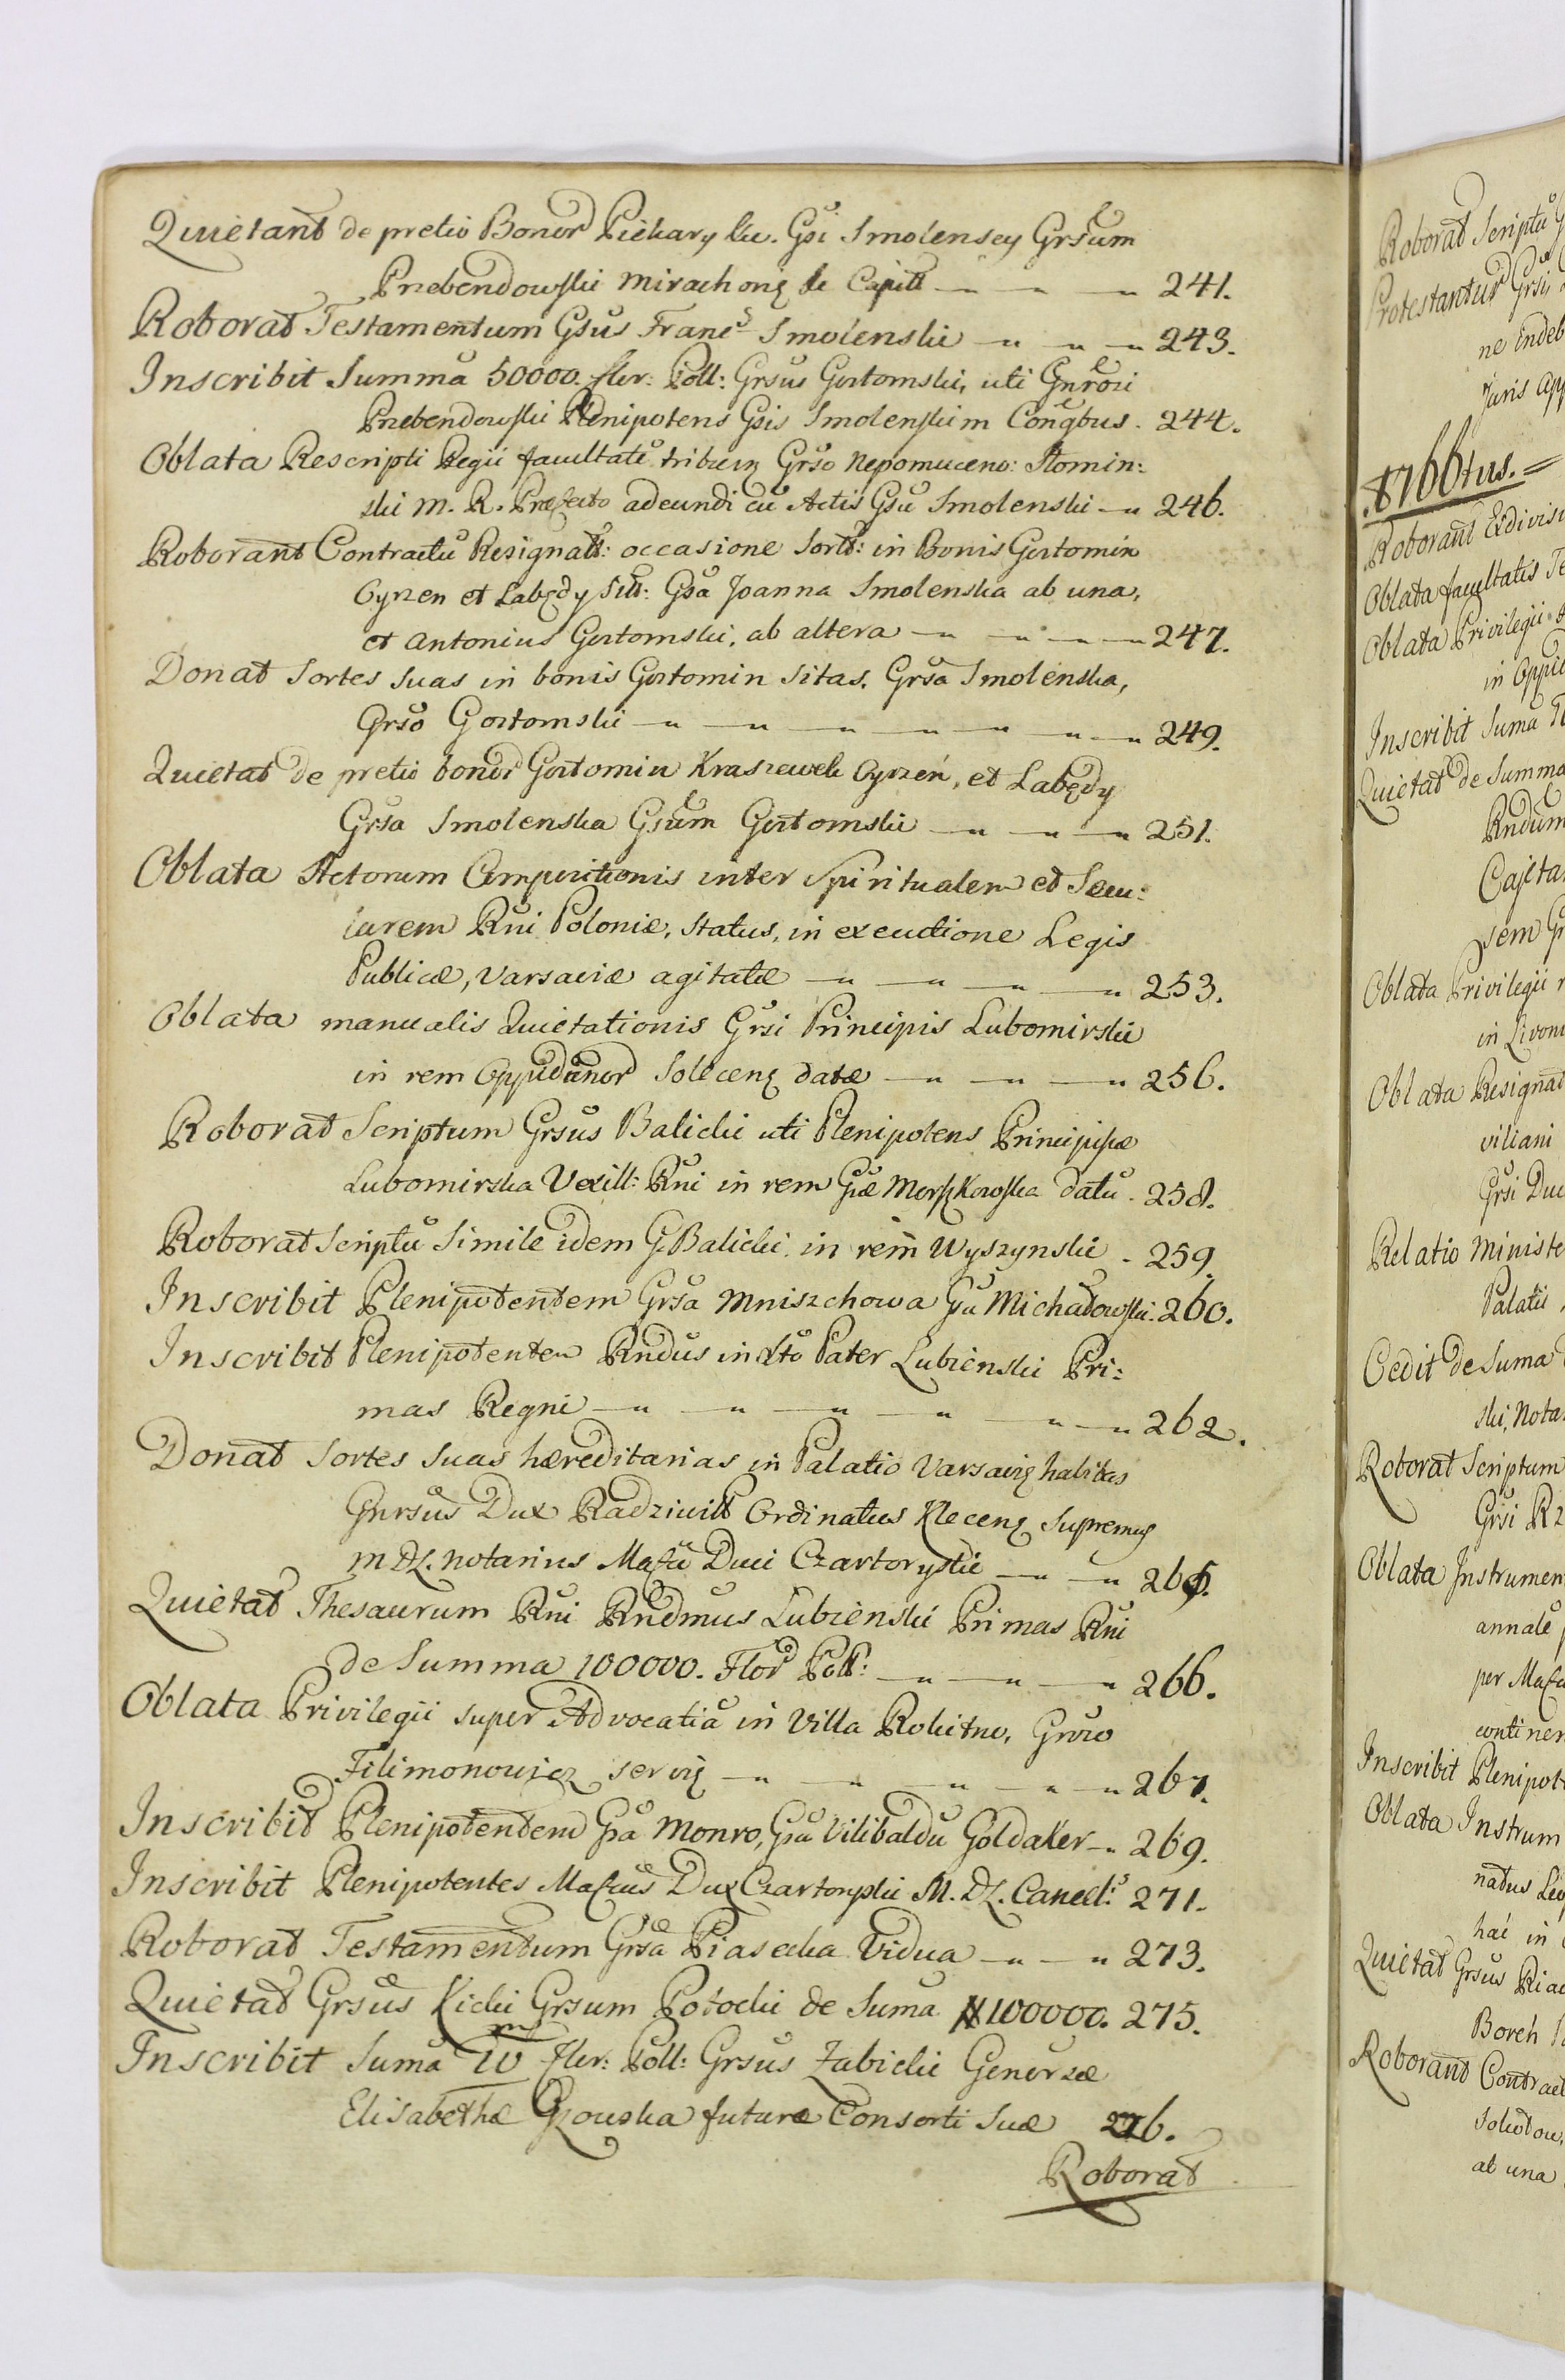 Quietant de pretio Bonor Piekary &c. Gsi Smolenscy Grsum
Przebendowski Mirachovię &c Capitt — 241.
Roborat Testamentum Gsus Franc Smolenski — 243.
Inscribit Summa 50000. flor: Poll: Grsus Gostomski, uti Gnrosi
Przebendowski Plenipotens Gsis Smolenskim Congbus. 244.
Oblata Rescripti Regii facultate tribuen Grso Nepomuceno: Slomin:
ski M. R. Præfecto adeundi cu Actis Gsu Smolenski — 246.
Roborant Contractu Resignatt: occasione Sort: in Bonis Gostomin
Cyrzen et Labędy Sitt: Gsa Joanna Smolenska ab una,
et Antonius Gostomski, ab altera — 247.
Donat Sortes Suas in bonis Gostomin Sitas. Grsa Smolenska,
Grso Gostomski — 249.
Quietat de pretio bonor Gostomin Kraszewek Cyrzeń, et Labędy
Grsa Smolenska Gsum Gostomski — 251.
Oblata Actorum Compositionis inter Spiritualem et Secu:
larem Rni Poloniæ, Status, in executione Legis
Publicæ, Varsaviæ agitatæ — 253.
Oblata manualis Quietationis Grsi Principis Lubomirski
in rem Oppidanor Solecenę datæ — 256.
Roborat Scriptum Grsus Balicki uti Plenipotens Principissæ
Lubomirska Vexill: Rni in rem Gsæ Morszkowska datu. 258.
Roborat Scriptu Simile idem G. Balicki in rem Wyszynski. 259.
Inscribit Plenipotentem Grsa Mniszchowa Gsu Michałowski. 260.
Inscribit Plenipotentem Rndus in Xto Pater Lubienski Pri:
mas Regni — 262.
Donat Sortes Suas hæreditarias in Palatio Varsavię habitas
Gnrsus Dux Radziwill Ordinatus Klecenę Supremus
M. D. L. Notarius Magcu Duci Czartoryski — 265.
Quietat Thesaurum Rni Rndmus Lubienski Primas Rni
de Summa 100000. Flor Poll: — 266.
Oblata Privilegii super Advocatia in Villa Rokitno, Grozo
Filimonowicz servię — 267.
Inscribit Plenipotentem Gsa Monro, Gsu Vilibaldu Goldaker — 269.
Inscribit Plenipotentes Magcus Dux Czartoryski M. D. L. Cancell: 271.
Roborat Testamentum Grsa Piasecka Vidua — 273.
Quietat Grsus Kicki Grsum Potocki de Suma # 100000. 275.
Inscribit Suma 10 flor: Poll: Grsus Zabicki Generosæ
Elisabethæ Gzowska futuræ Consorti Suæ 276.
Roborat
Roborat Scriptu G
Protestantur Grsi
ne indeb
Juris app
1766tus.
Roborant Exdivisi
Oblata facultatis Te
Oblata Privilegii
in Oppid
Inscribit Suma
Quietat de Summa
Rndum
Cajeta
sem G
Oblata Privilegii
in Livoni
Oblata Resignat
viliani
Grsi Duc
Relatio Ministe
Palatii
Cedit de Suma
ski, Nota
Roborat Scriptum
Grsi Rz
Oblata Instrumen
annale
per Magcu
continen
Inscribit Plenipot
Oblata Instrum
natus Leo
hai in
Quietat Grsus Ria
Borch
Roborant Contract
Solutou
ab una